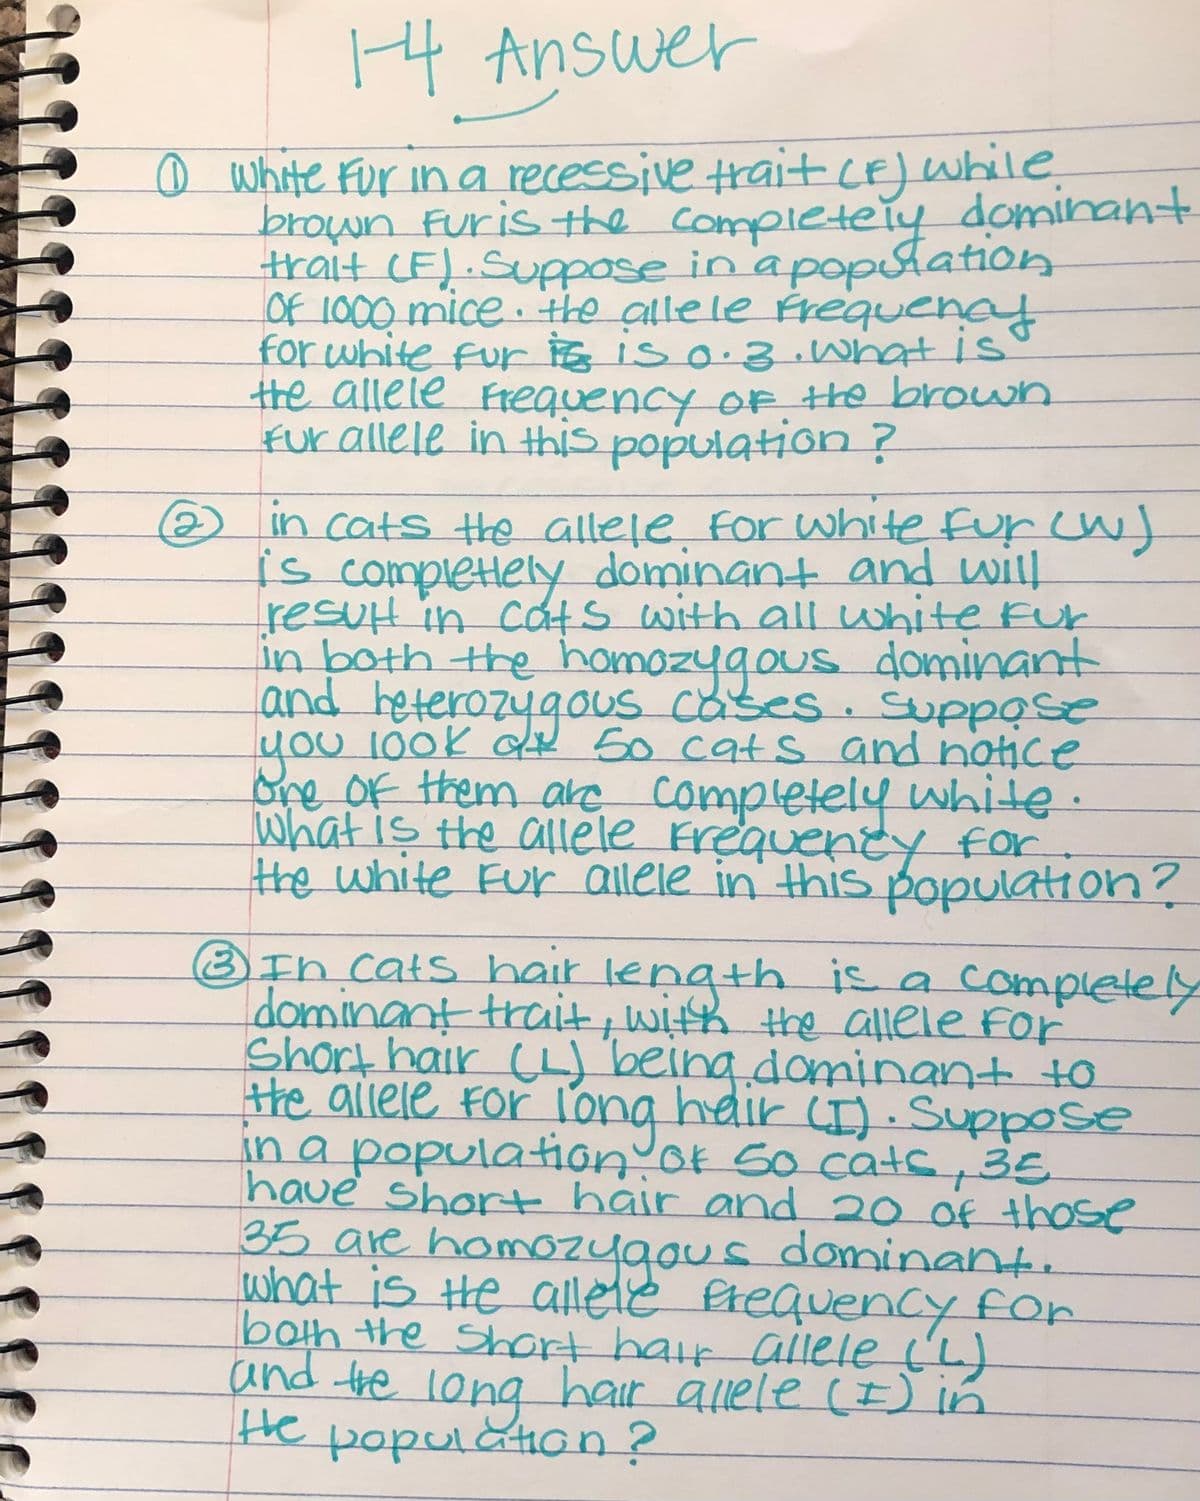 1-4 Answer
① White Fur in a recessive trait (F) while
brown Fur is the completely dominant
trait (F). Suppose in a population
of 1000 mice. the allele frequency
for white fur is 0.3. what is
the allele Frequency of the brown
fur allele in this population?
② in cats the allele for white fur (W)
is completlely dominant and will
result in cats with all white Fur
in both the homozygous dominant
and heterozygous cases. Suppose
you look at 50 cats and notice
One of them are completely white.
What is the allele Frequency for.
the white Fur allele in this population?
③ In cats hair length is a completely
dominant trait, with the allele For
Short hair (L) being dominant to
the allele For long hair (I). Suppose
in a population of 50 cats, 35
have short hair and 20 of those
35 are homozygous dominant.
what is the allele frequency for
both the Short hair allele (L)
and the long hair allele (I) in
the population?